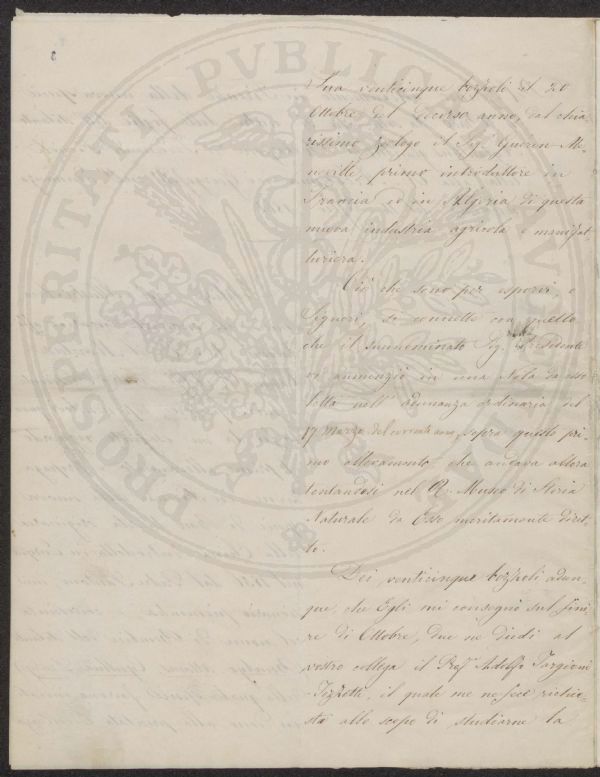 PROSPERITATI PUBLICAE AUGENDAE
Sua venticinque bozzoli il 20
Ottobre del decorso anno, dal chia-
rissimo zoologo il Sig. Guérin Me-
neville, primo introduttore in
Francia ed in Algeria di questa
nuova industria agricola e manifat-
turiera.
Ciò che sono per esporvi, o
Signori, si connette con quello
che il sunnominato Sig. Presidente
vi annunziò in una Nota da esso
letta nell' adunanza ordinaria del
17 Marzo del corrente anno, sopra questo pri-
mo allevamento che andava allora
tentandosi nel R. Museo di Storia
Naturale da Esso meritamente diret-
to.
Dei venticinque bozzoli adun-
que, che Egli mi consegnò sul fini-
re di Ottobre, due ne diedi al
vostro collega il Prof. Adolfo Targioni
-Tozzetti, il quale me ne fece richie-
sta allo scopo di studiarne la